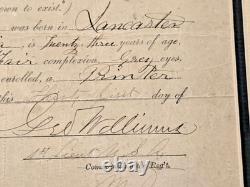 own to exist.)
was born in Lancaster
is twenty three years of age,
Fair complexion, Grey eyes,
enrolled, a Printer
this first day of
Geo Williams
1st Lieut
Com Reg't.